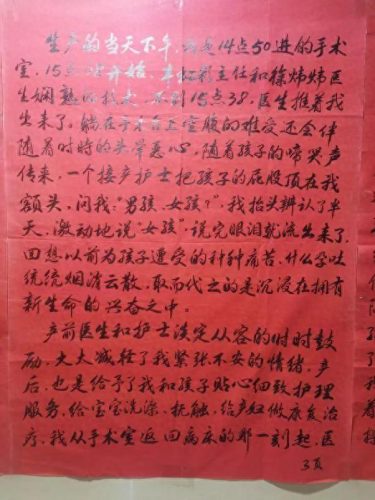 生产的当天下午,我是14点50进的手术
室,15点 开始,主任和徐炜炜医
生娴熟的技术,不到15点38,医生推着我
出来了,躺在手术台上空腹的难受还会伴
随着时时的头晕恶心,随着孩子的啼哭声
传来,一个接产护士把孩子的屁股顶在我
额头,问我:"男孩、女孩?",我抬头辨认了半
天,激动地说"女孩",说完眼泪就流出来了,
回想以前为孩子遭受的种种痛苦,什么孕吐
统统烟消云散,取而代之的是沉浸在拥有
新生命的兴奋之中。
产前医生和护士淡定从容的时时鼓
励,大大减轻了我紧张不安的情绪,产
后,也是给予了我和孩子贴心细致护理
服务,给宝宝洗澡、抚触,给产妇做康复治
疗,我从手术室返回病床的那一刻起,医
3页